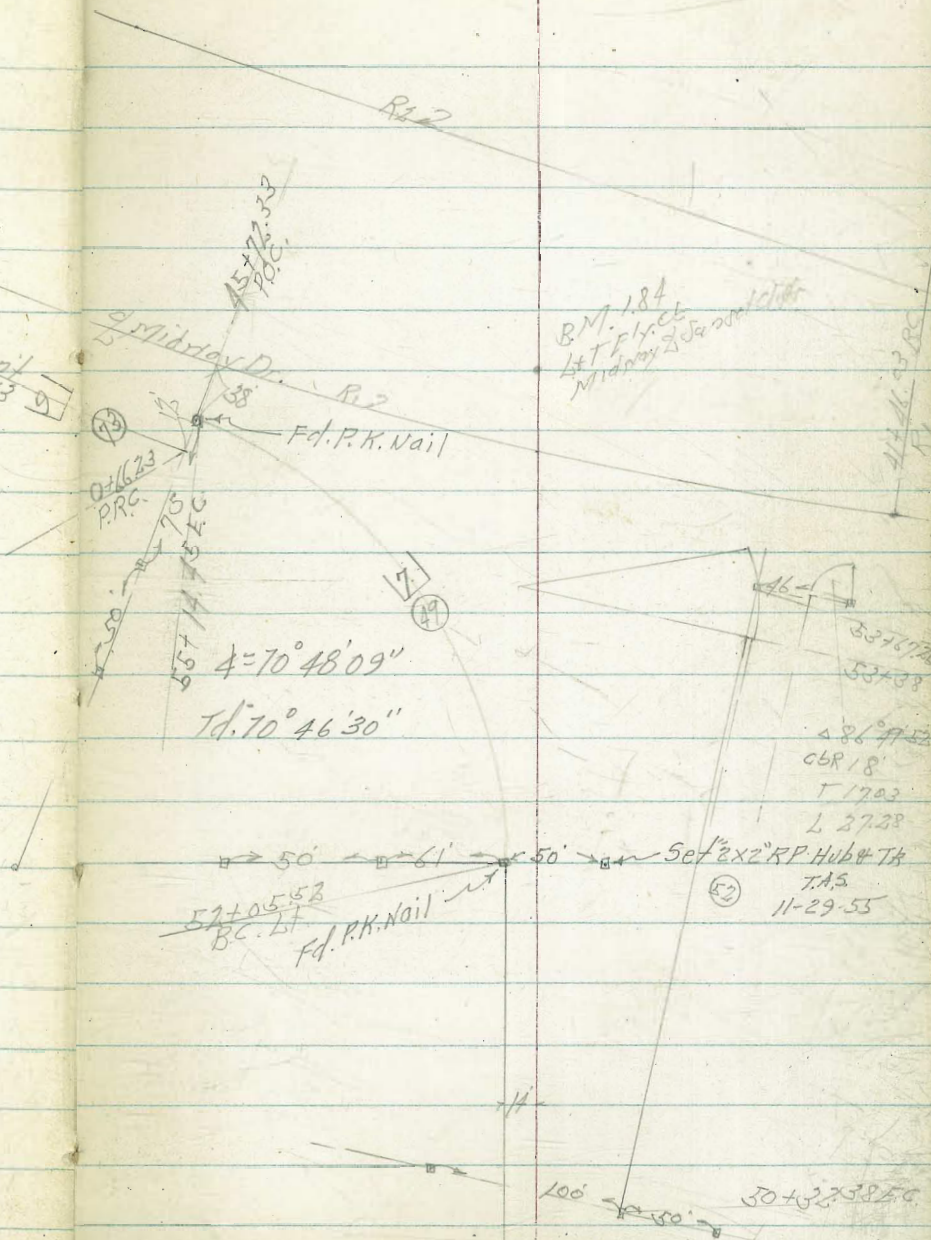 R12
45+72.33
P.O.C.
B.M. 1.84
L+T Fly. ct
Midway &
℄ Midway Dr.
R12
38'
13'
73
Fd. P.K. Nail
41+46.03 B.C.
R1
9
0+66.23
P.R.C.
75'
50'
55+14.45 E.C.
7
49
46
53+67.
53+38
∆=70° 48' 09"
Td. 70° 46' 30"
∆ 86° 49' 52
CbR 18'
T 17.03
L 27.28
50' 61' 50'
Set 2"x2" RP. Hub & Tk
T.A.S.
11-29-55
52
52+05.52
B.C. Lt.
Fd. P.K. Nail
14'
100' 50'
50+32.38 E.C.